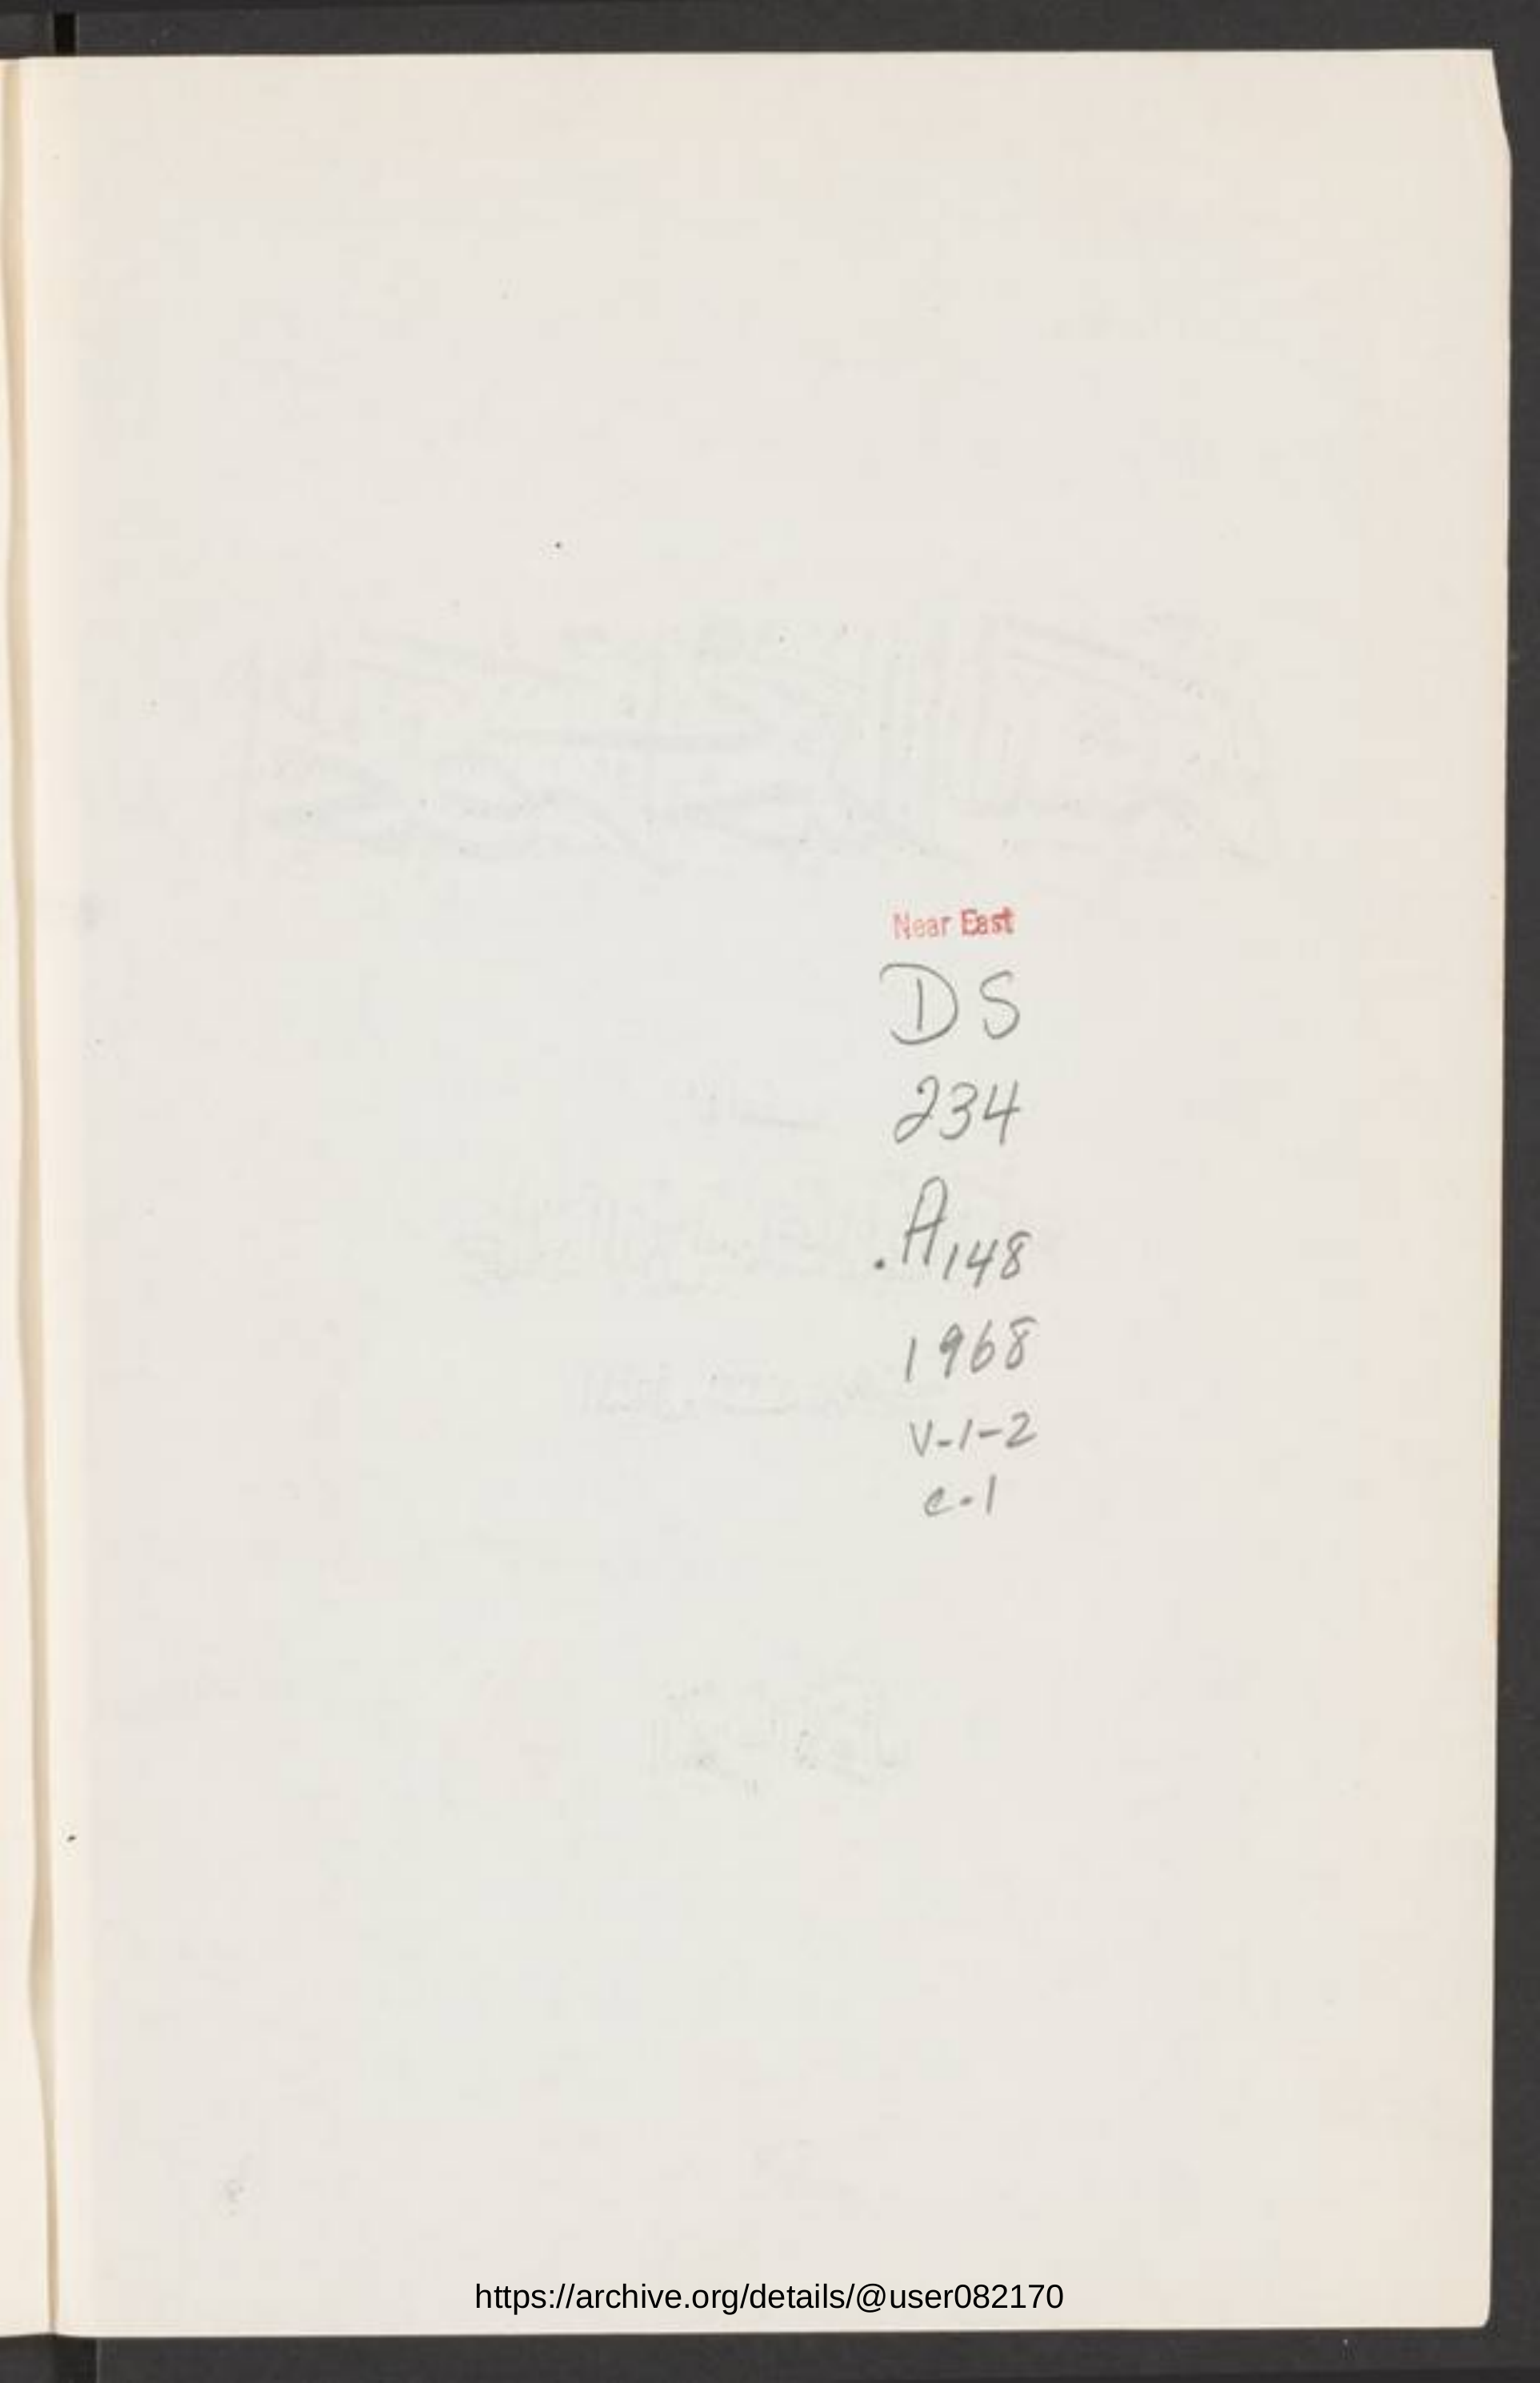 Near East
DS
234
.A148
1968
V-1-2
c.1
https://archive.org/details/@user082170